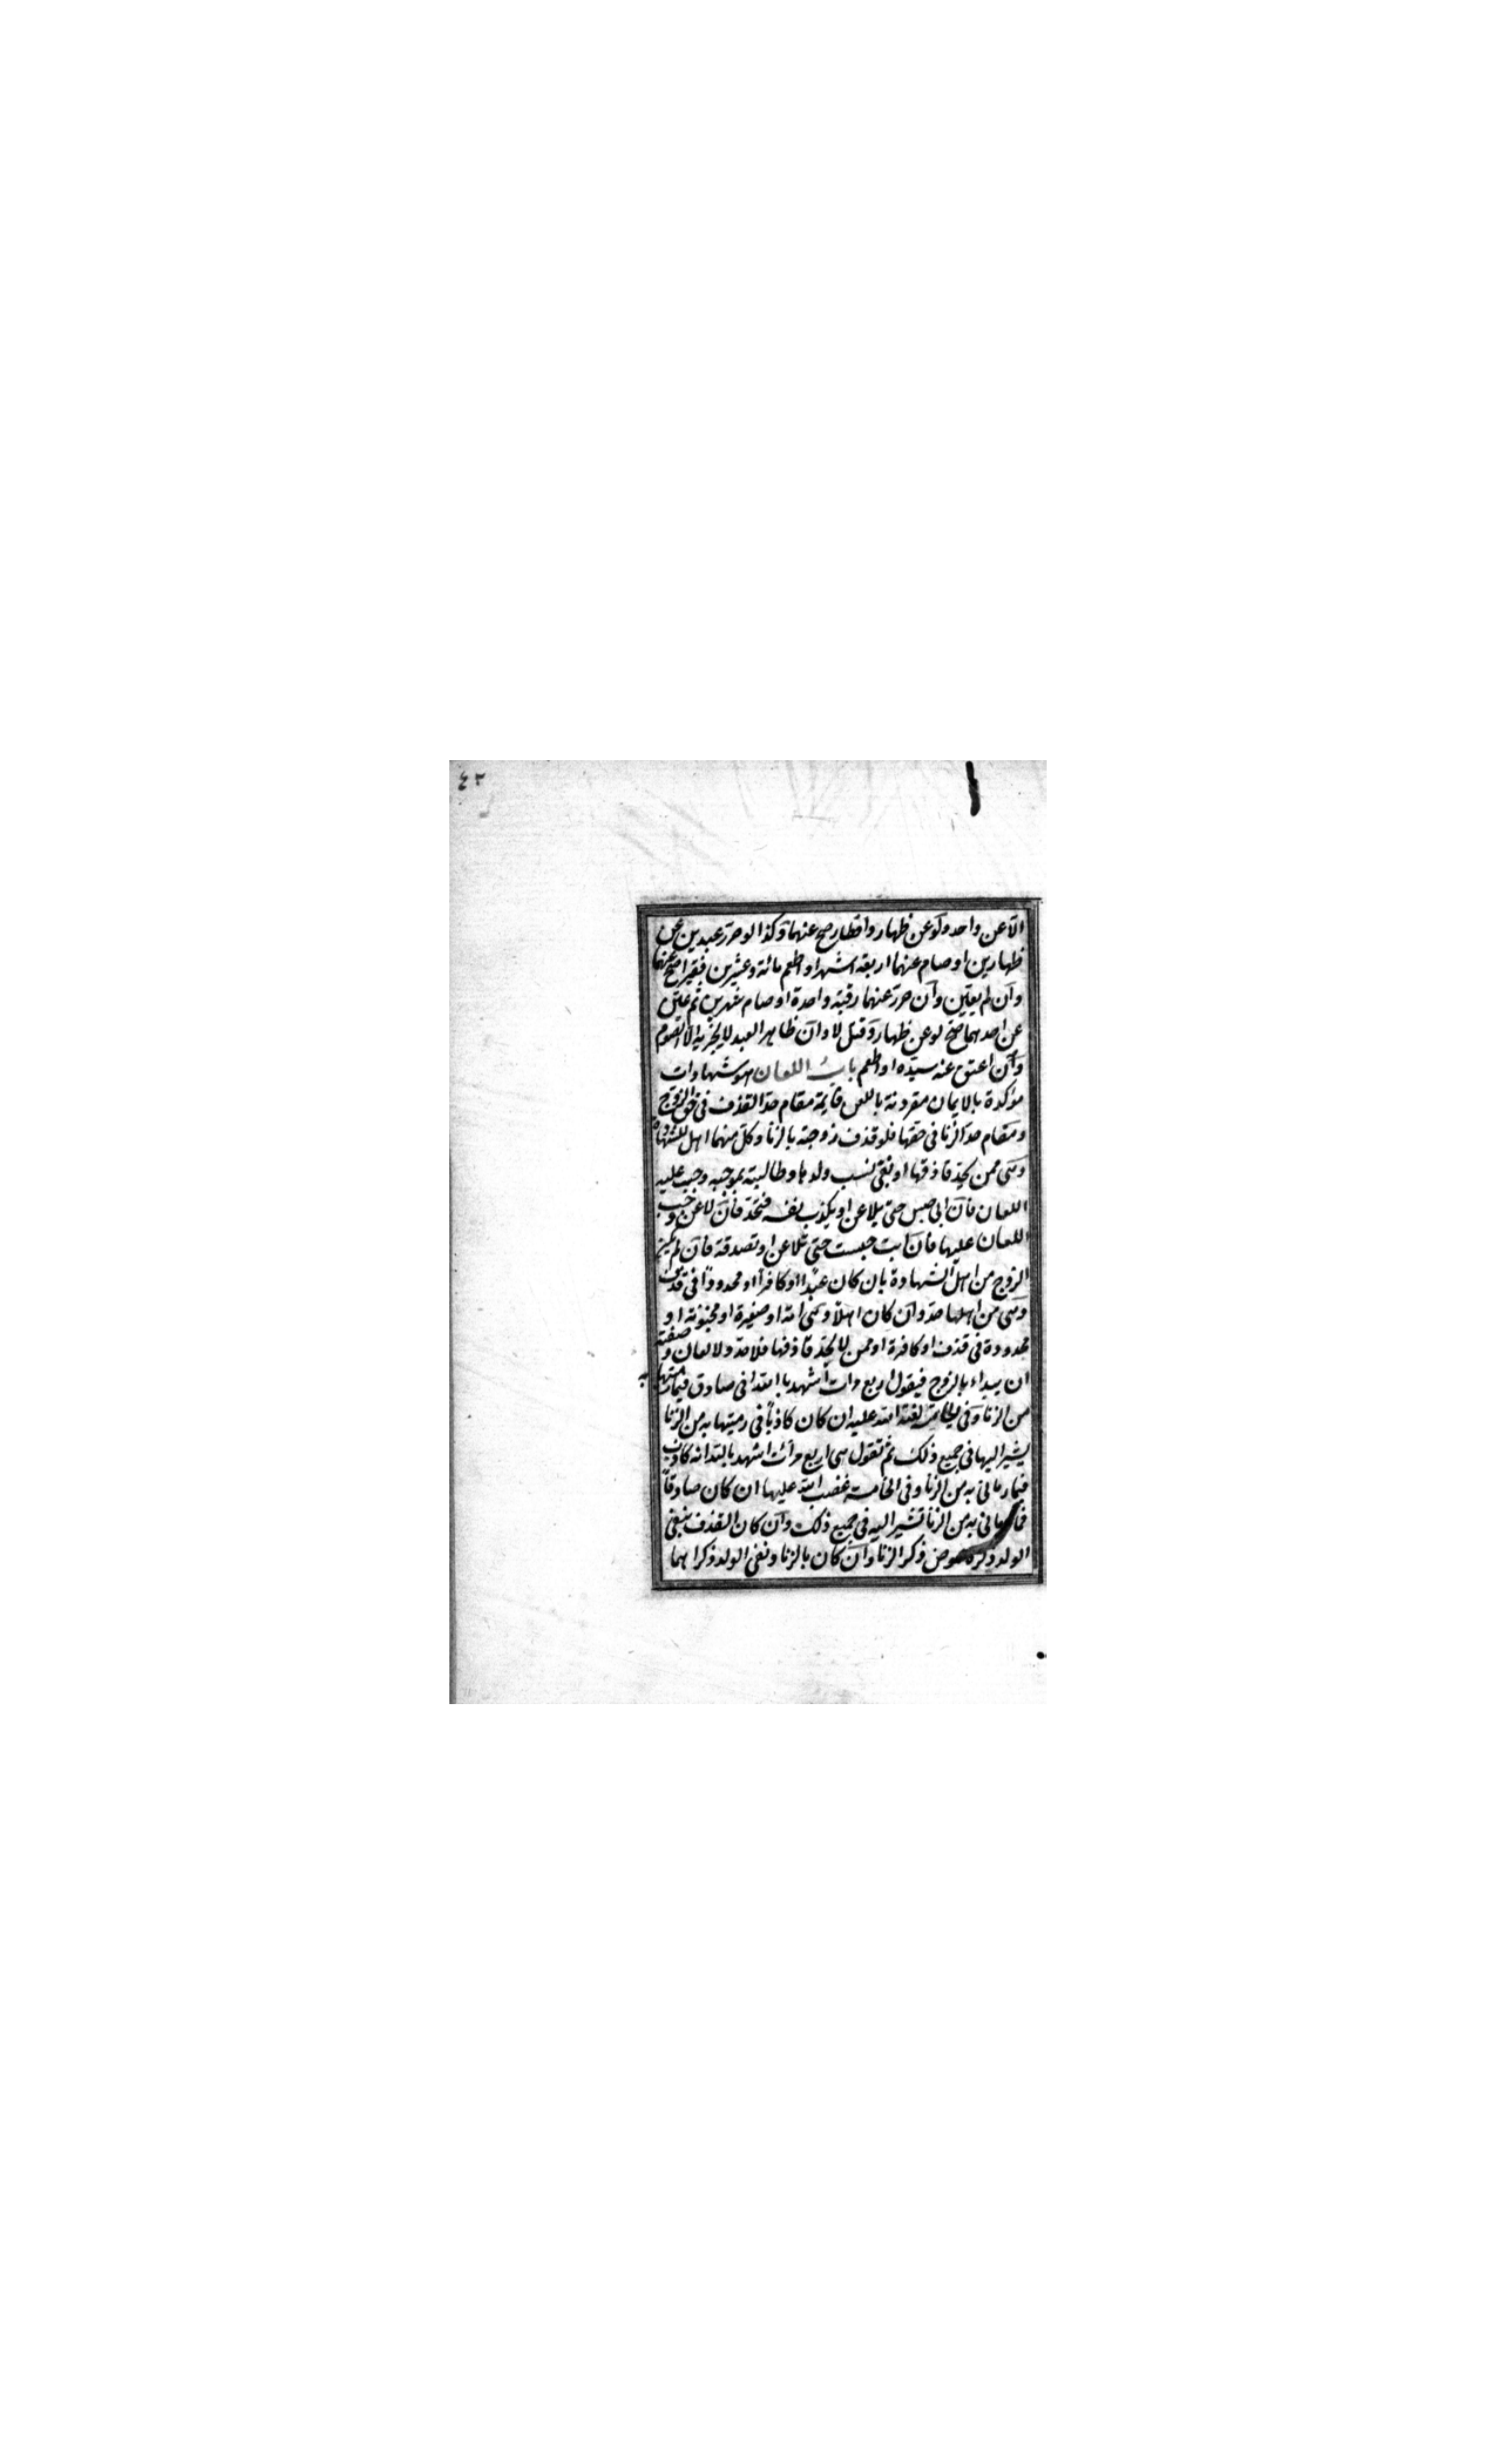 ٤٢
الا عن واحد ولو عن ظهار وافطار صح عنهما وكذا لو حرر عبدين عن
ظهارين او صام عنهما اربعة اشهر او اطعم مائة وعشرين فقيرا صح عنهما
وان لم يعين وان حرر عنهما رقبة واحدة او صام شهرين ثم عين
عن احدهما صح لو عن ظهار وقتل لا وان ظاهر العبد لا يجزيه الا الصوم
وان اعتق عنه سيده او اطعم باب اللعان هو شهادات
مؤكدة بالايمان مقرونة باللعن قايمة مقام حد القذف في حق الزوج
ومقام حد الزنا في حقها فلو قذف زوجته بالزنا وكل منهما اهل للشهادة
وهي ممن يحد قاذفها او نفى نسب ولدها وطالبته بموجبه وجب عليه
اللعان فان ابى حبس حتى يلاعن او يكذب نفسه فيحد فان لاعن وجب
اللعان عليها فان ابت حبست حتى تلاعن او تصدقه فان لم يكن
الزوج من اهل الشهادة بان كان عبدا او كافرا او محدودا في قذف
وهي من اهلها حد وان كان اهلا وهي امة او صغيرة او مجنونة او
محدودة في قذف او كافرة او ممن لا يحد قاذفها فلا حد ولا لعان وصفته
ان يبداء بالزوج فيقول اربع مرات اشهد بالله اني صادق فيما رميتها به
من الزنا وفي الخامسة لعنة الله عليه ان كان كاذبا في رميتها به من الزنا
يشير اليها في جميع ذلك ثم تقول هي اربع مرات اشهد بالله انه كاذب
فيما رماني به من الزنا وفي الخامسة غضب الله عليها ان كان صادقا
فيما رماني به من الزنا تشير اليه في جميع ذلك وان كان القذف بنفي
الولد ذكره عوض ذكر الزنا وان كان بالزنا ونفي الولد ذكراهما